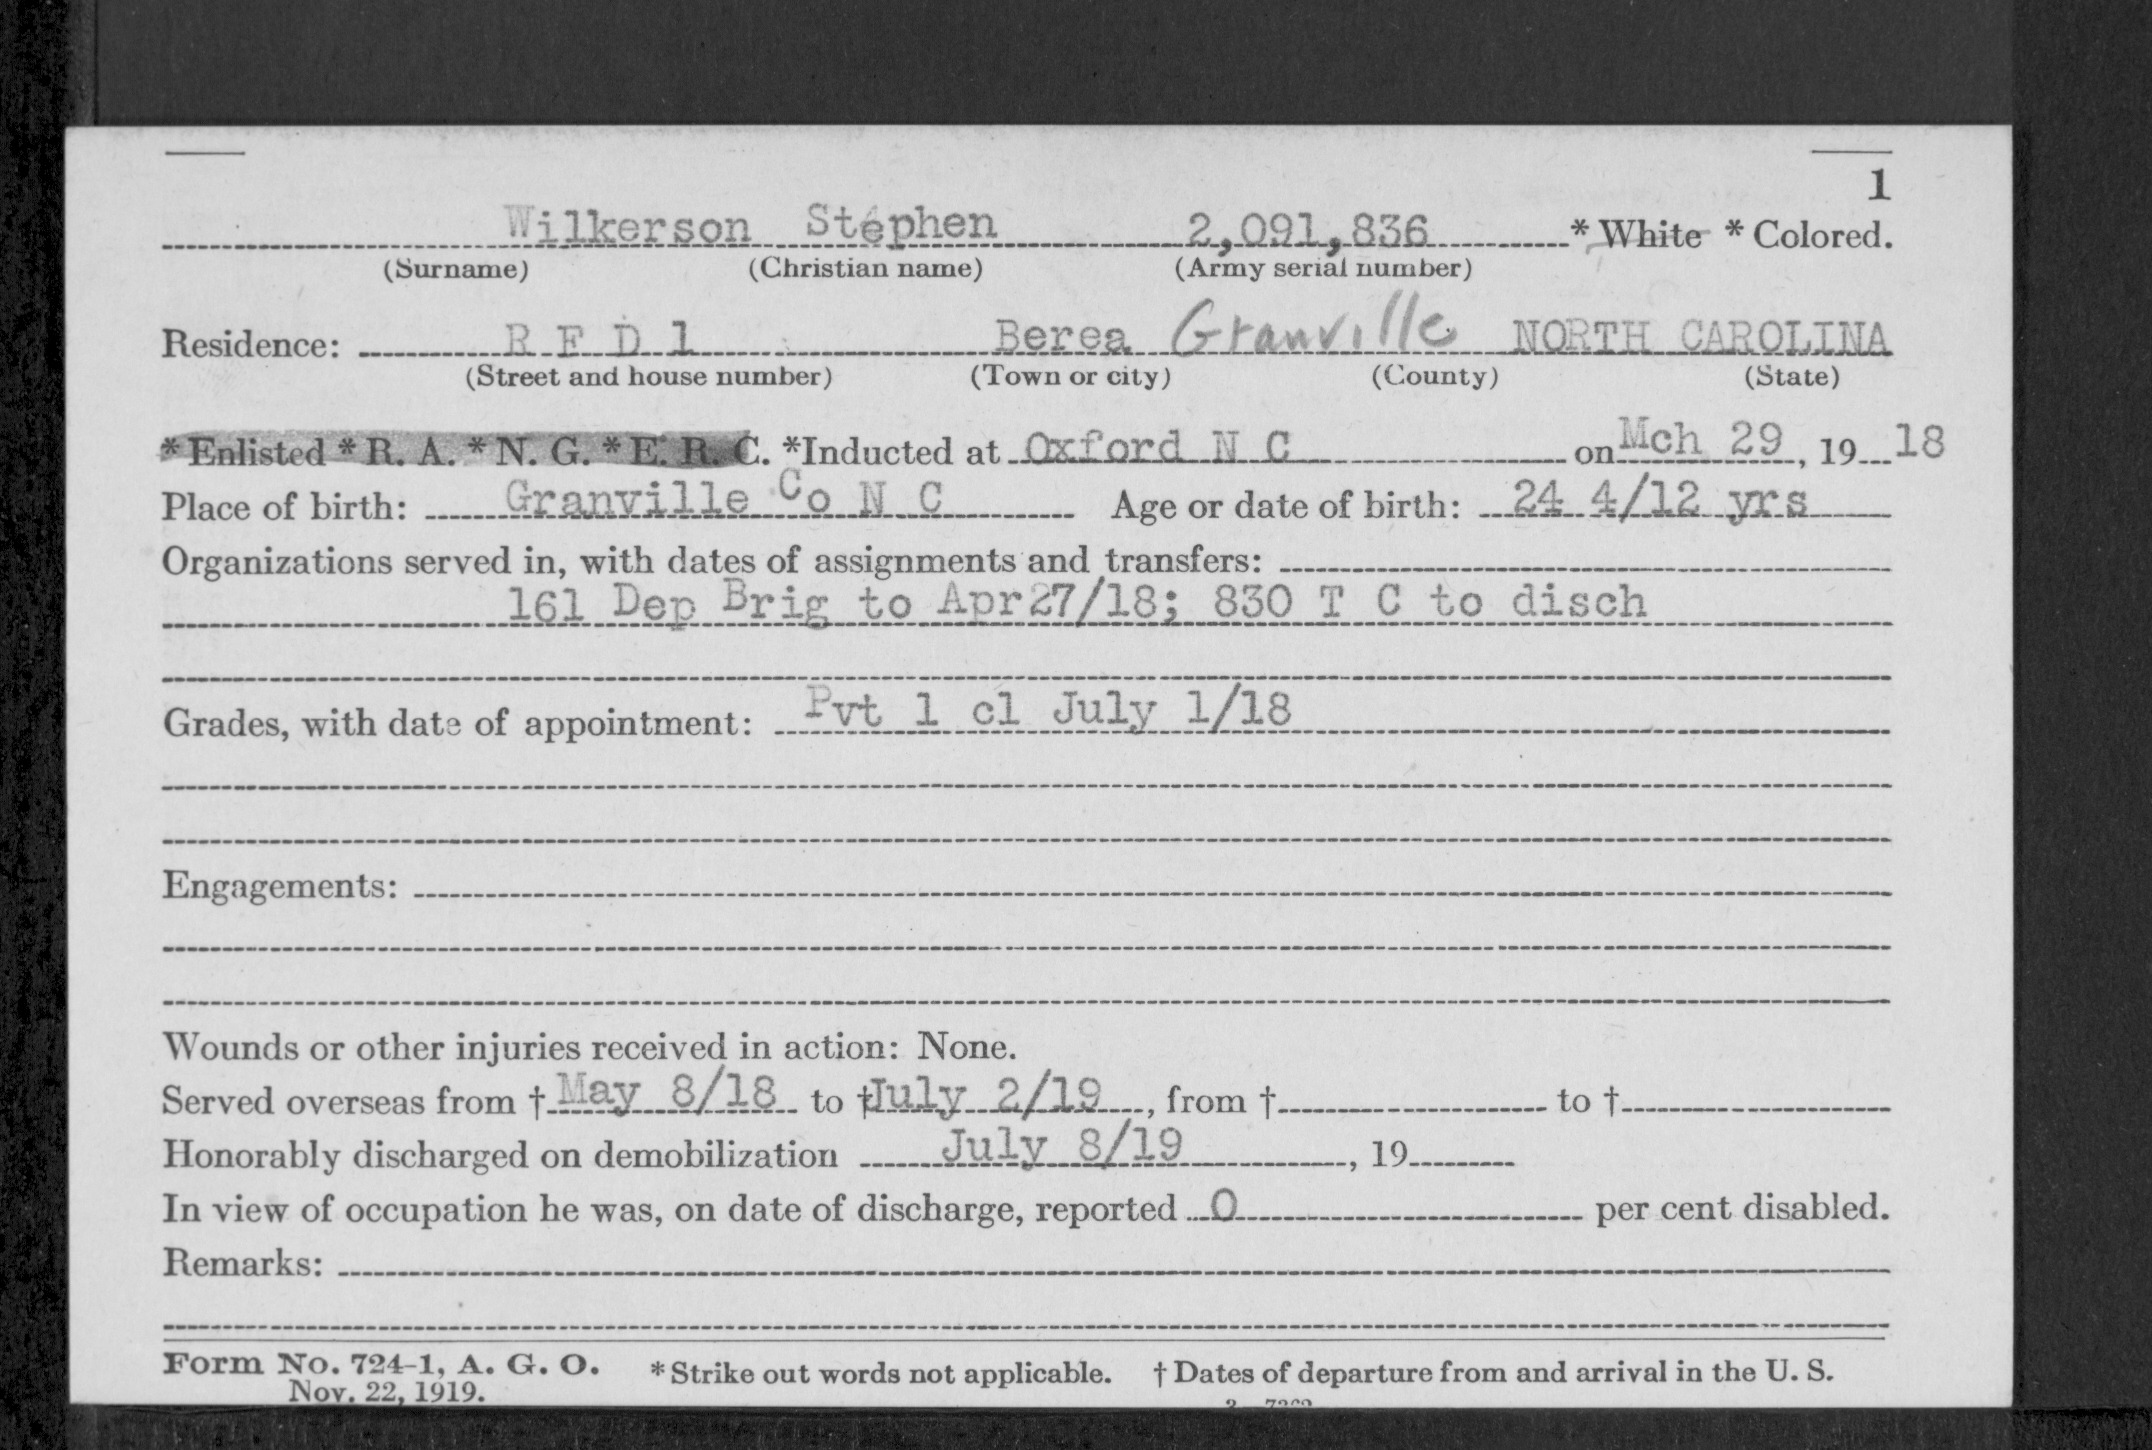 1
Wilkerson Stephen 2,091,836 * White * Colored.
(Surname) (Christian name) (Army serial number)
Residence: R F D 1 Berea Granville NORTH CAROLINA
(Street and house number) (Town or city) (County) (State)
*Enlisted *R. A. *N. G. *E. R. C. *Inducted at Oxford N C on Mch 29, 1918
Place of birth: Granville Co N C Age or date of birth: 24 4/12 yrs
Organizations served in, with dates of assignments and transfers:
161 Dep Brig to Apr27/18; 830 T C to disch
Grades, with date of appointment: Pvt 1 cl July 1/18
Engagements:
Wounds or other injuries received in action: None.
Served overseas from † May 8/18 to † July 2/19, from † to †
Honorably discharged on demobilization July 8/19, 19
In view of occupation he was, on date of discharge, reported 0 per cent disabled.
Remarks:
Form No. 724-1, A. G. O. *Strike out words not applicable. † Dates of departure from and arrival in the U. S.
Nov. 22, 1919.